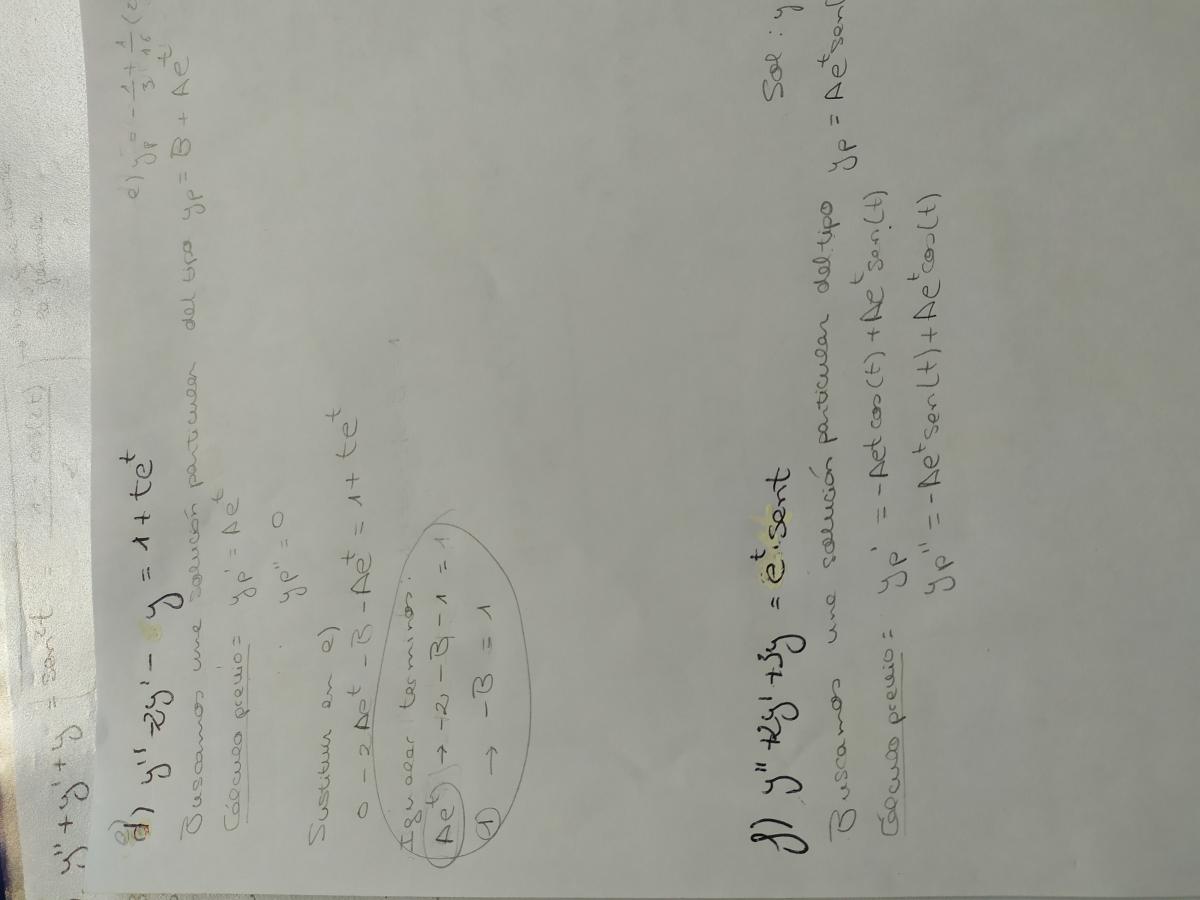 y'' + y' + y = sen²t =
e) yp = - 1/3 + 1/16 (
e)
d) y'' - 2y' - y = 1 + te^t
Buscamos una solución particular del tipo yp = B + Ae^t
Cálculo previo: yp' = Ae^t
yp'' = 0
Sustituir en e)
0 - 2Ae^t - B - Ae^t = 1 + te^t
Igualar terminos:
Ae^t → -2 - B - 1 = 1
1 → -B = 1
Sol: y
f) y'' + 2y' + 3y = e^t · sent
Buscamos una solución particular del tipo yp = Ae^t sen(
Cálculo previo: yp' = -Ae^t cos(t) + Ae^t sen(t)
yp'' = -Ae^t sen(t) + Ae^t cos(t)